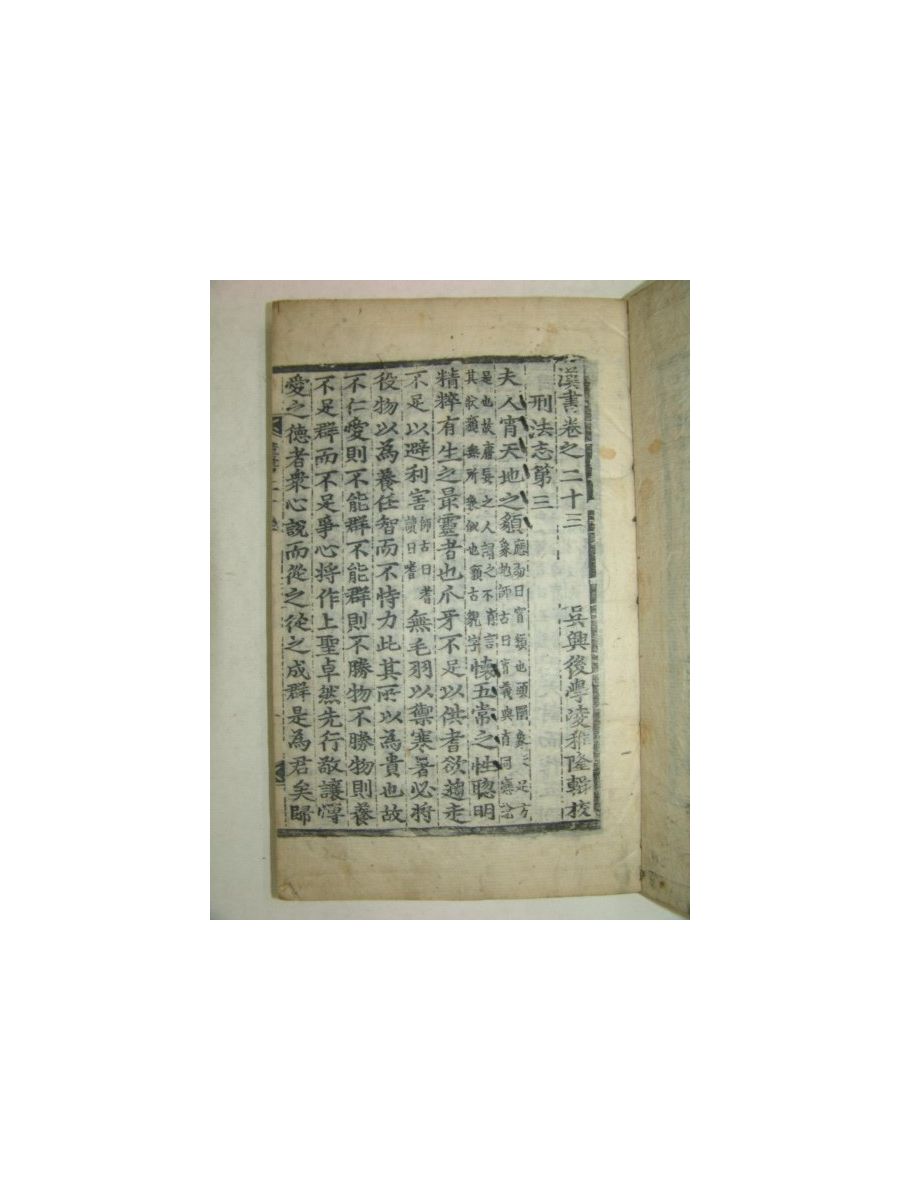 漢書卷之二十三 吳興後學凌稚隆輯校
刑法志第三
夫人宵天地之䫉 應劭曰宵類也頭圜象天足方象地師古曰宵義與肖同應說是也故庸妄之人謂之不肖言其狀䫉無所象似也䫉古貌字 懷五常之性聰明
精粹有生之最靈者也爪牙不足以供耆欲趨走
不足以避利害 師古曰耆讀曰嗜 無毛羽以禦寒暑必將
役物以為養任智而不恃力此其所以為貴也故
不仁愛則不能群不能群則不勝物不勝物則養
不足群而不足爭心將作上聖卓然先行敬讓愽
愛之德者衆心說而從之從之成群是為君矣歸